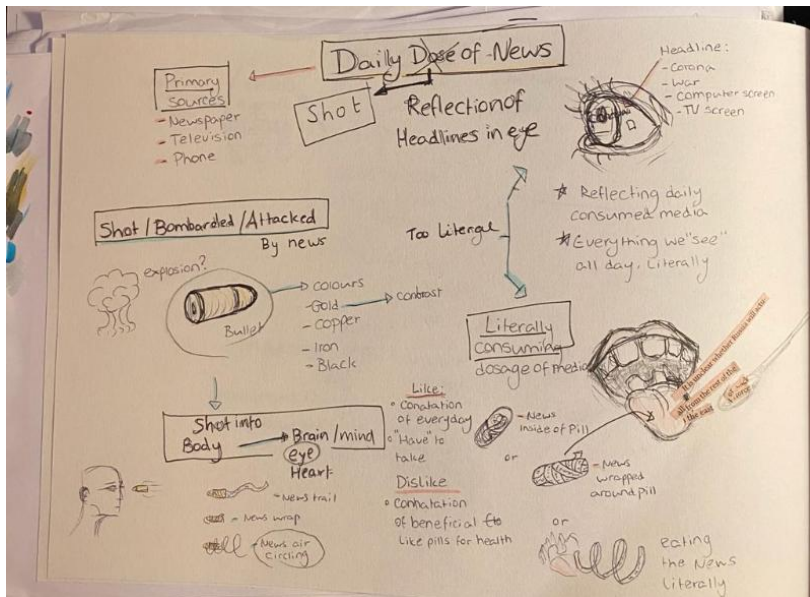 Daily Dose of News
Shot
Primary
sources
- Newspaper
- Television
- Phone
Reflection of
Headlines in eye
Headline:
- Corona
- War
- Computer screen
- TV screen
Reflecting daily
consumed media
Everything we "see"
all day, Literally
Too Litengl
Shot / Bombarded / Attacked
By news
explosion?
Bullet
colours
- Gold
contrast
- Copper
- Iron
- Black
Literally
consuming
dosage of media
it is unclear whether Russia will actu
all from the rest of the
Shot into
Body
Brain / mind
eye
Heart
- News trail
- News wrap
- News air
circling
Like:
Conatation
of everyday
"Have" to
take
Dislike
Conhatation
of beneficial
Like pills for health
- News
inside of Pill
or
- News
wrapped
around pill
or
eating
the News
Literally